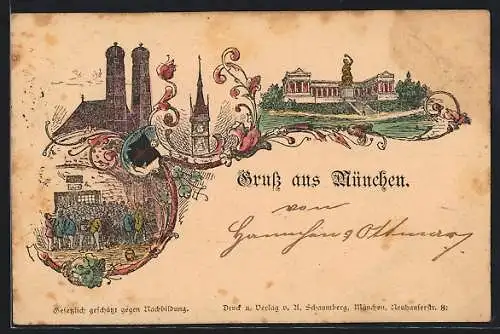 Gruß aus München.
von
Hannchen & Ottmar
Gesetzlich geschützt gegen Nachbildung.
Druck u. Verlag v. A. Schaumberg, München, Neuhauserstr. 8.